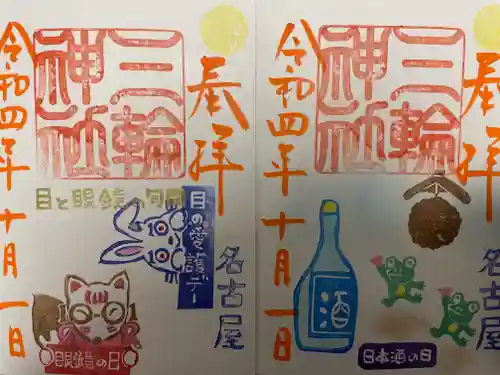 奉拝
三輪
神社
令和四年十月一日
目と眼鏡の旬間
目の愛護デー
名古屋
10
10
眼鏡の日
奉拝
三輪
神社
令和四年十月一日
名古屋
酒
日本酒の日